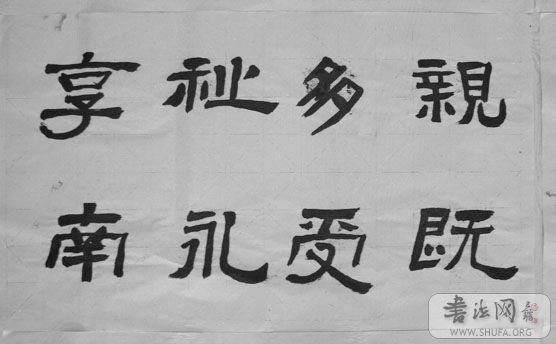 親既
多受
祉永
享南
書法网
WWW.SHUFA.ORG